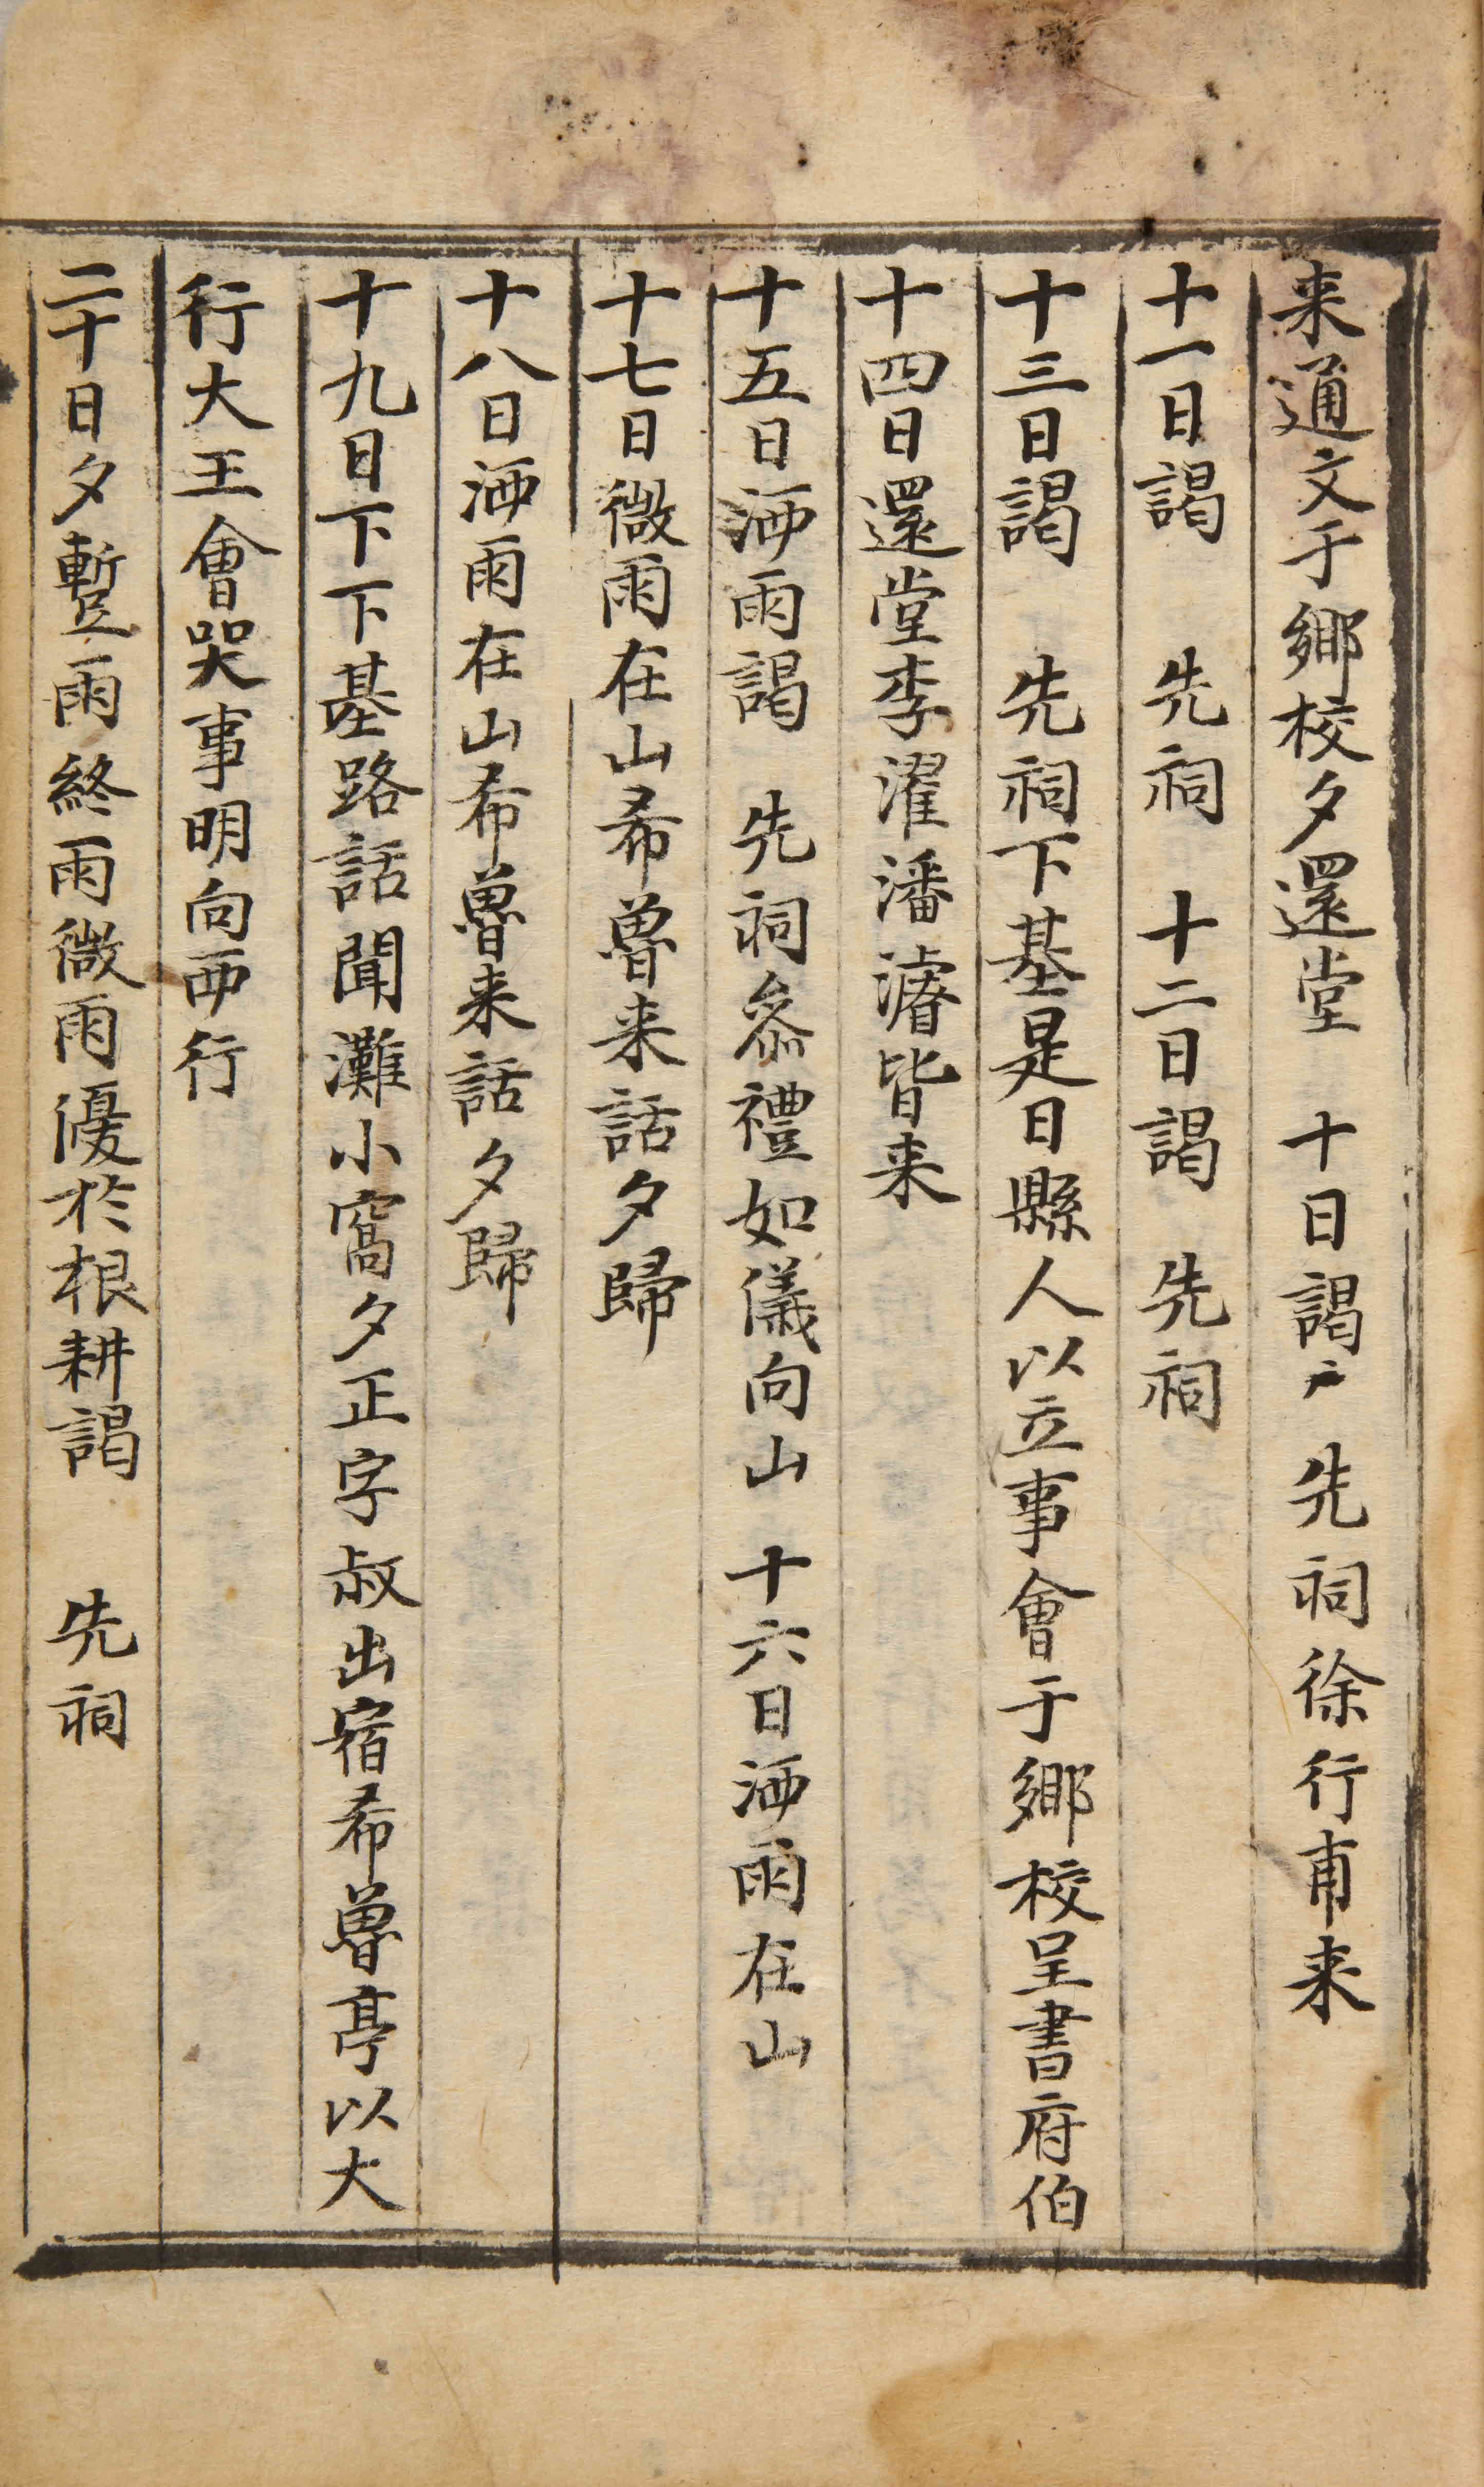 来通文于鄉校夕還堂　十日謁　先祠徐行甫来
十一日謁　先祠　十二日謁　先祠
十三日謁　先祠下基是日縣人以立事會于鄉校呈書府伯
十四日還堂李濯潘濬皆来
十五日洒雨謁　先祠叅禮如儀向山　十六日洒雨在山
十七日微雨在山希魯来話夕歸
十八日洒雨在山希魯来話夕歸
十九日下下基路話聞灘小窩夕正字叔出宿希魯亭以大
行大王會哭事明向西行
二十日夕蹔雨終雨微雨優於根耕謁　先祠